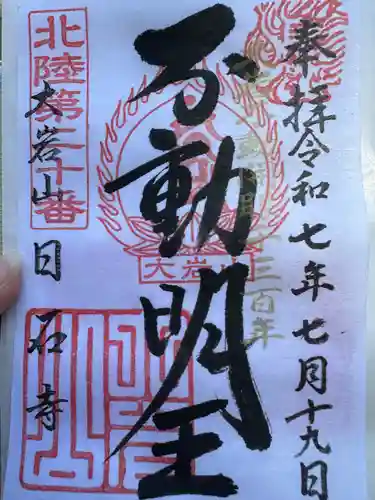 奉拝令和七年七月十九日
不動明王
千三百年
大岩山日石寺
北陸第二十番
大岩山